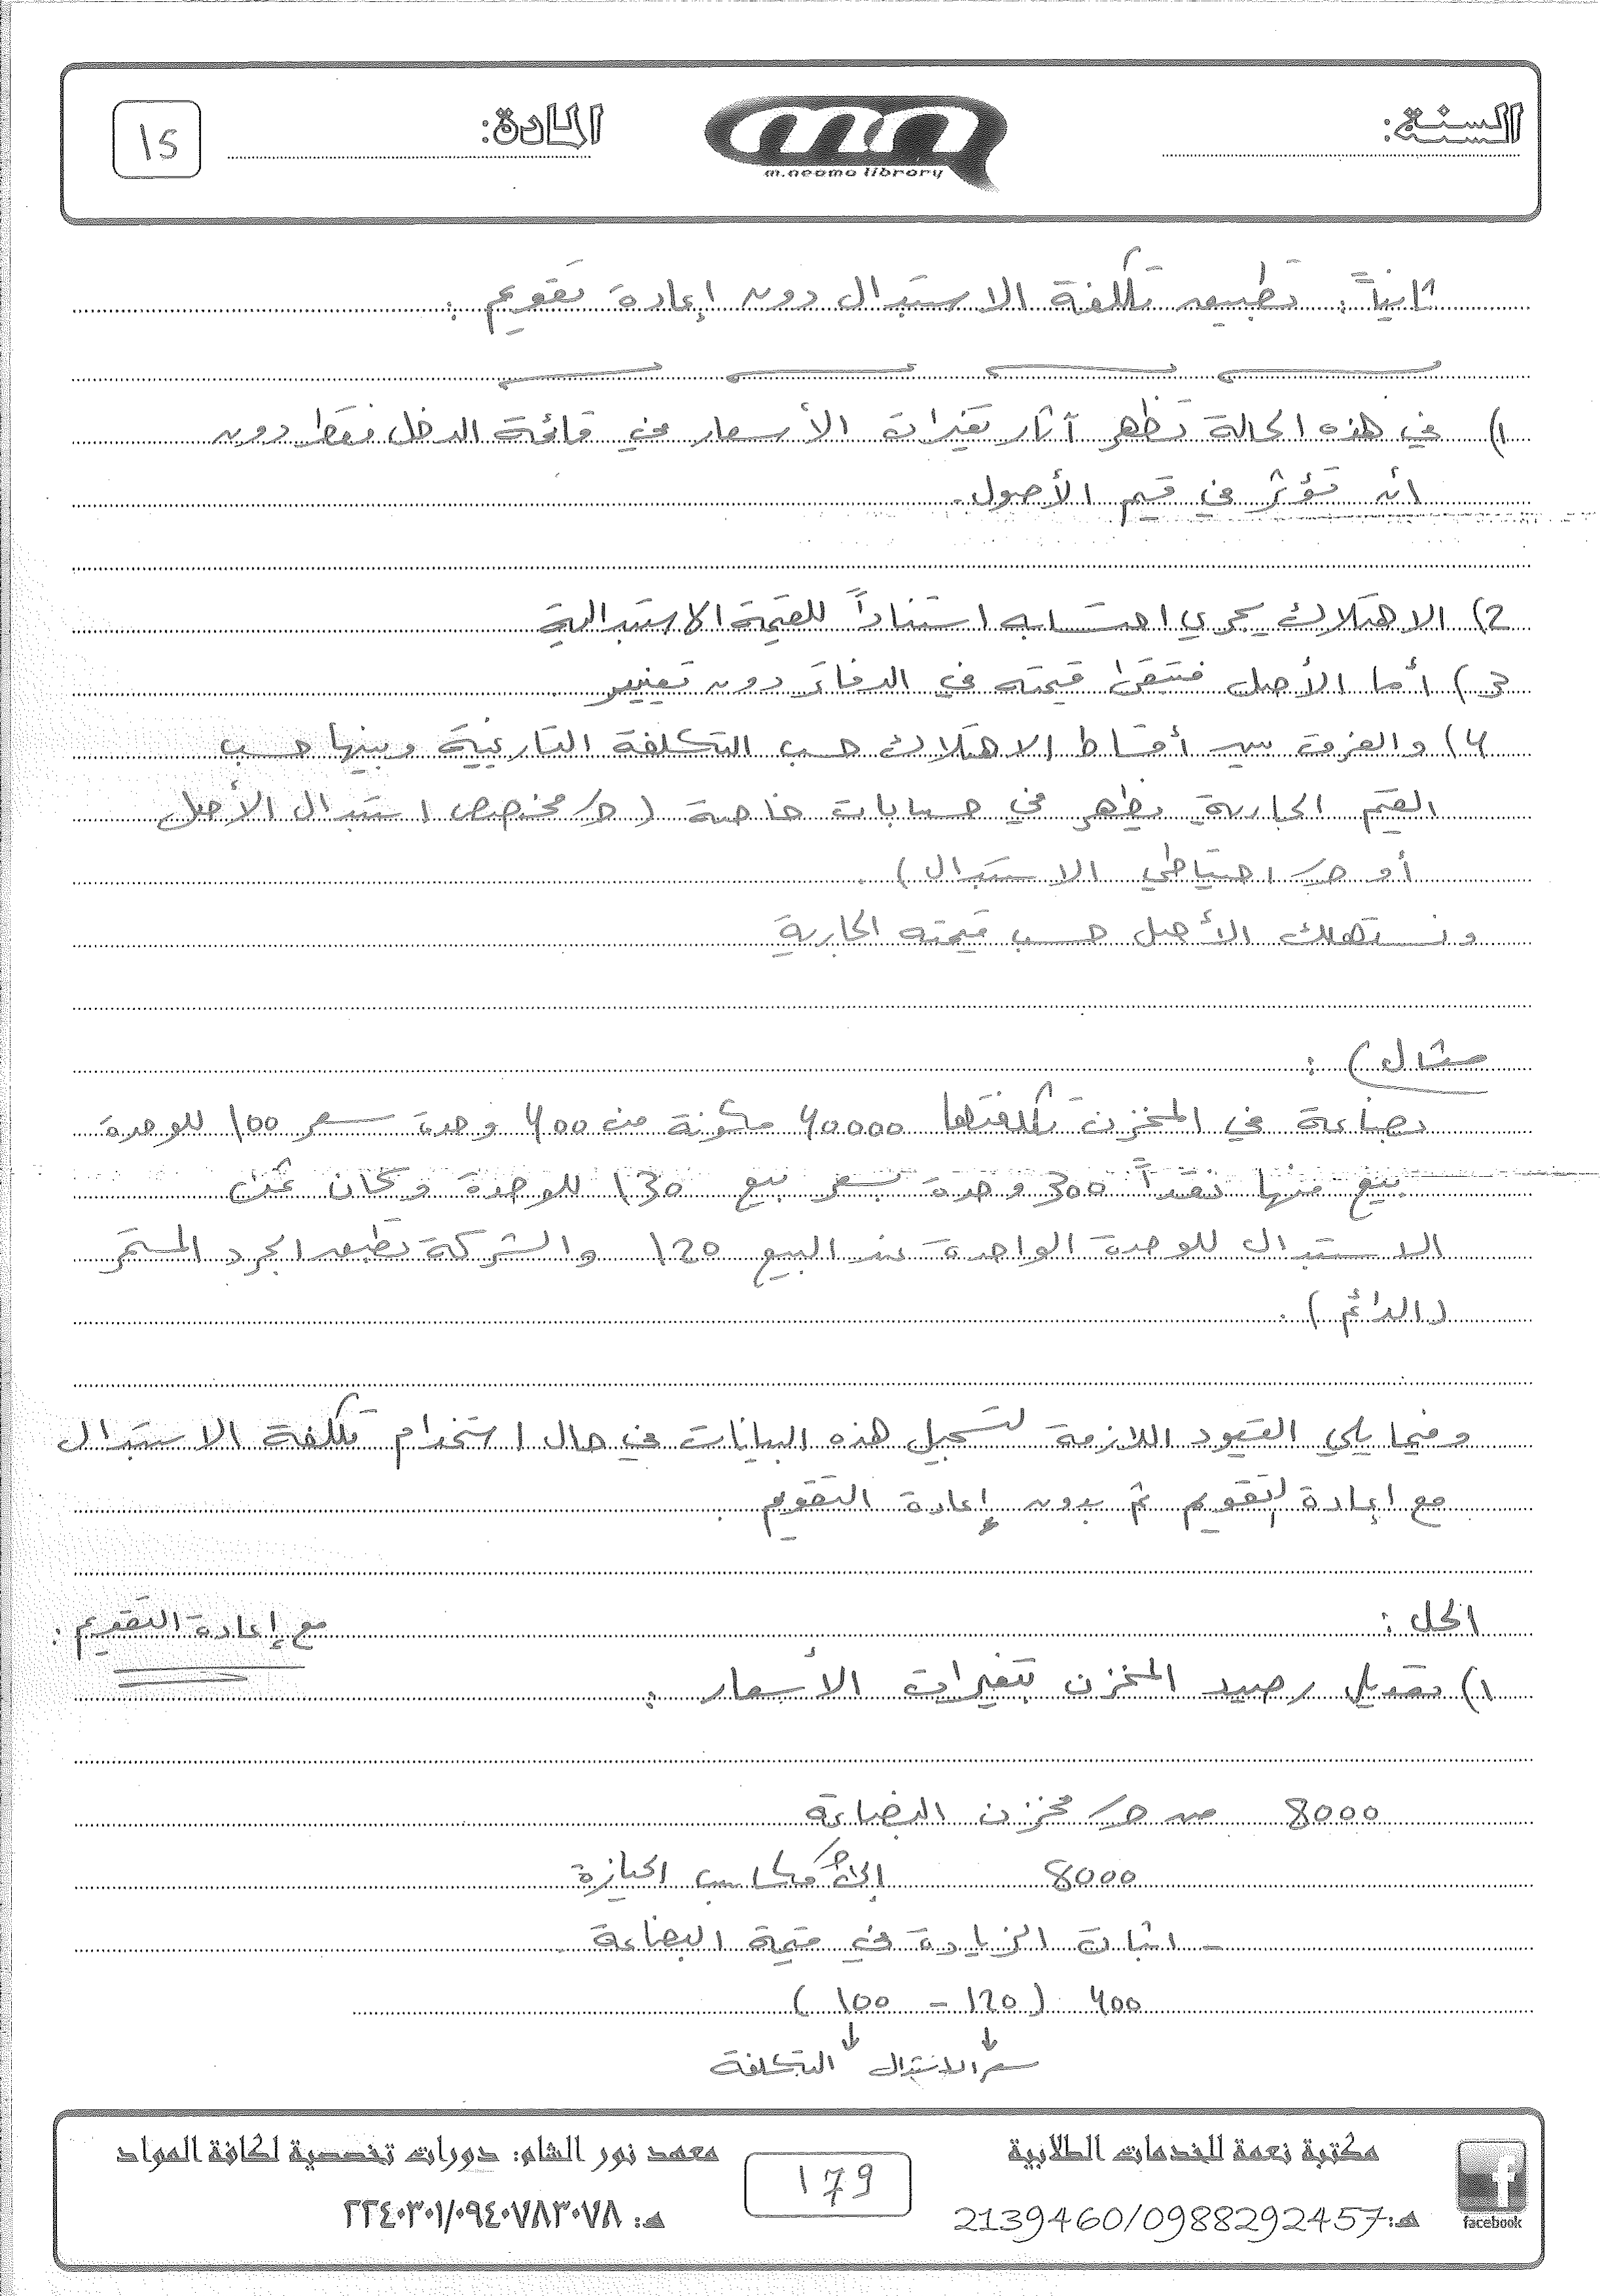 السنة:
m.neama library
المادة:
15
ثانياً: تطبيق تكلفة الاستبدال دون إعادة تقويم :
1) في هذه الحالة تظهر آثار تغيرات الأسعار في قائمة الدخل فقط دون
ان تؤثر في قيم الأصول.
2) الاهتلاك يجري احتسابه استناداً للقيمة الاستبدالية
3) أما الأصل فتبقى قيمته في الدفاتر دون تغيير
4) والفرق بين أقساط الاهتلاك حسب التكلفة التاريخية وبينها حسب
القيم الجارية يظهر في حسابات خاصة (حـ/ مخصص استبدال الأصل
أو حـ/ احتياطي الاستبدال).
ونستهلك الأصل حسب قيمته الجارية
مثال) :
بضاعة في المخزن تكلفتها 40000 مكونة من 400 وحدة سعر 100 للوحدة
بيع منها نقداً 300 وحدة بسعر بيع 130 للوحدة وكان ثمن
الاستبدال للوحدة الواحدة عند البيع 120 والشركة تطبق الجرد المستمر
(الدائم).
وفيما يلي القيود اللازمة لتسجيل هذه البيانات في حال استخدام تكلفة الاستبدال
مع إعادة التقويم ثم بدون إعادة التقويم.
الحل :
مع إعادة التقويم :
1) تعديل رصيد المخزن بتغيرات الأسعار :
8000 من حـ/ مخزن البضاعة
8000 إلى حـ/ مكاسب الحيازة
- اثبات الزيادة في قيمة البضاعة
400 (120 - 100)
سعر الاستبدال التكلفة
مكتبة نعمة للخدمات الطلابية
هـ: 2139460/0988292457
facebook
179
معهد نور الشام: دورات تخصصية لكافة المواد
هـ: ٢٢٤٠٣٠١/٠٩٤٠٧٨٣٠٧٨